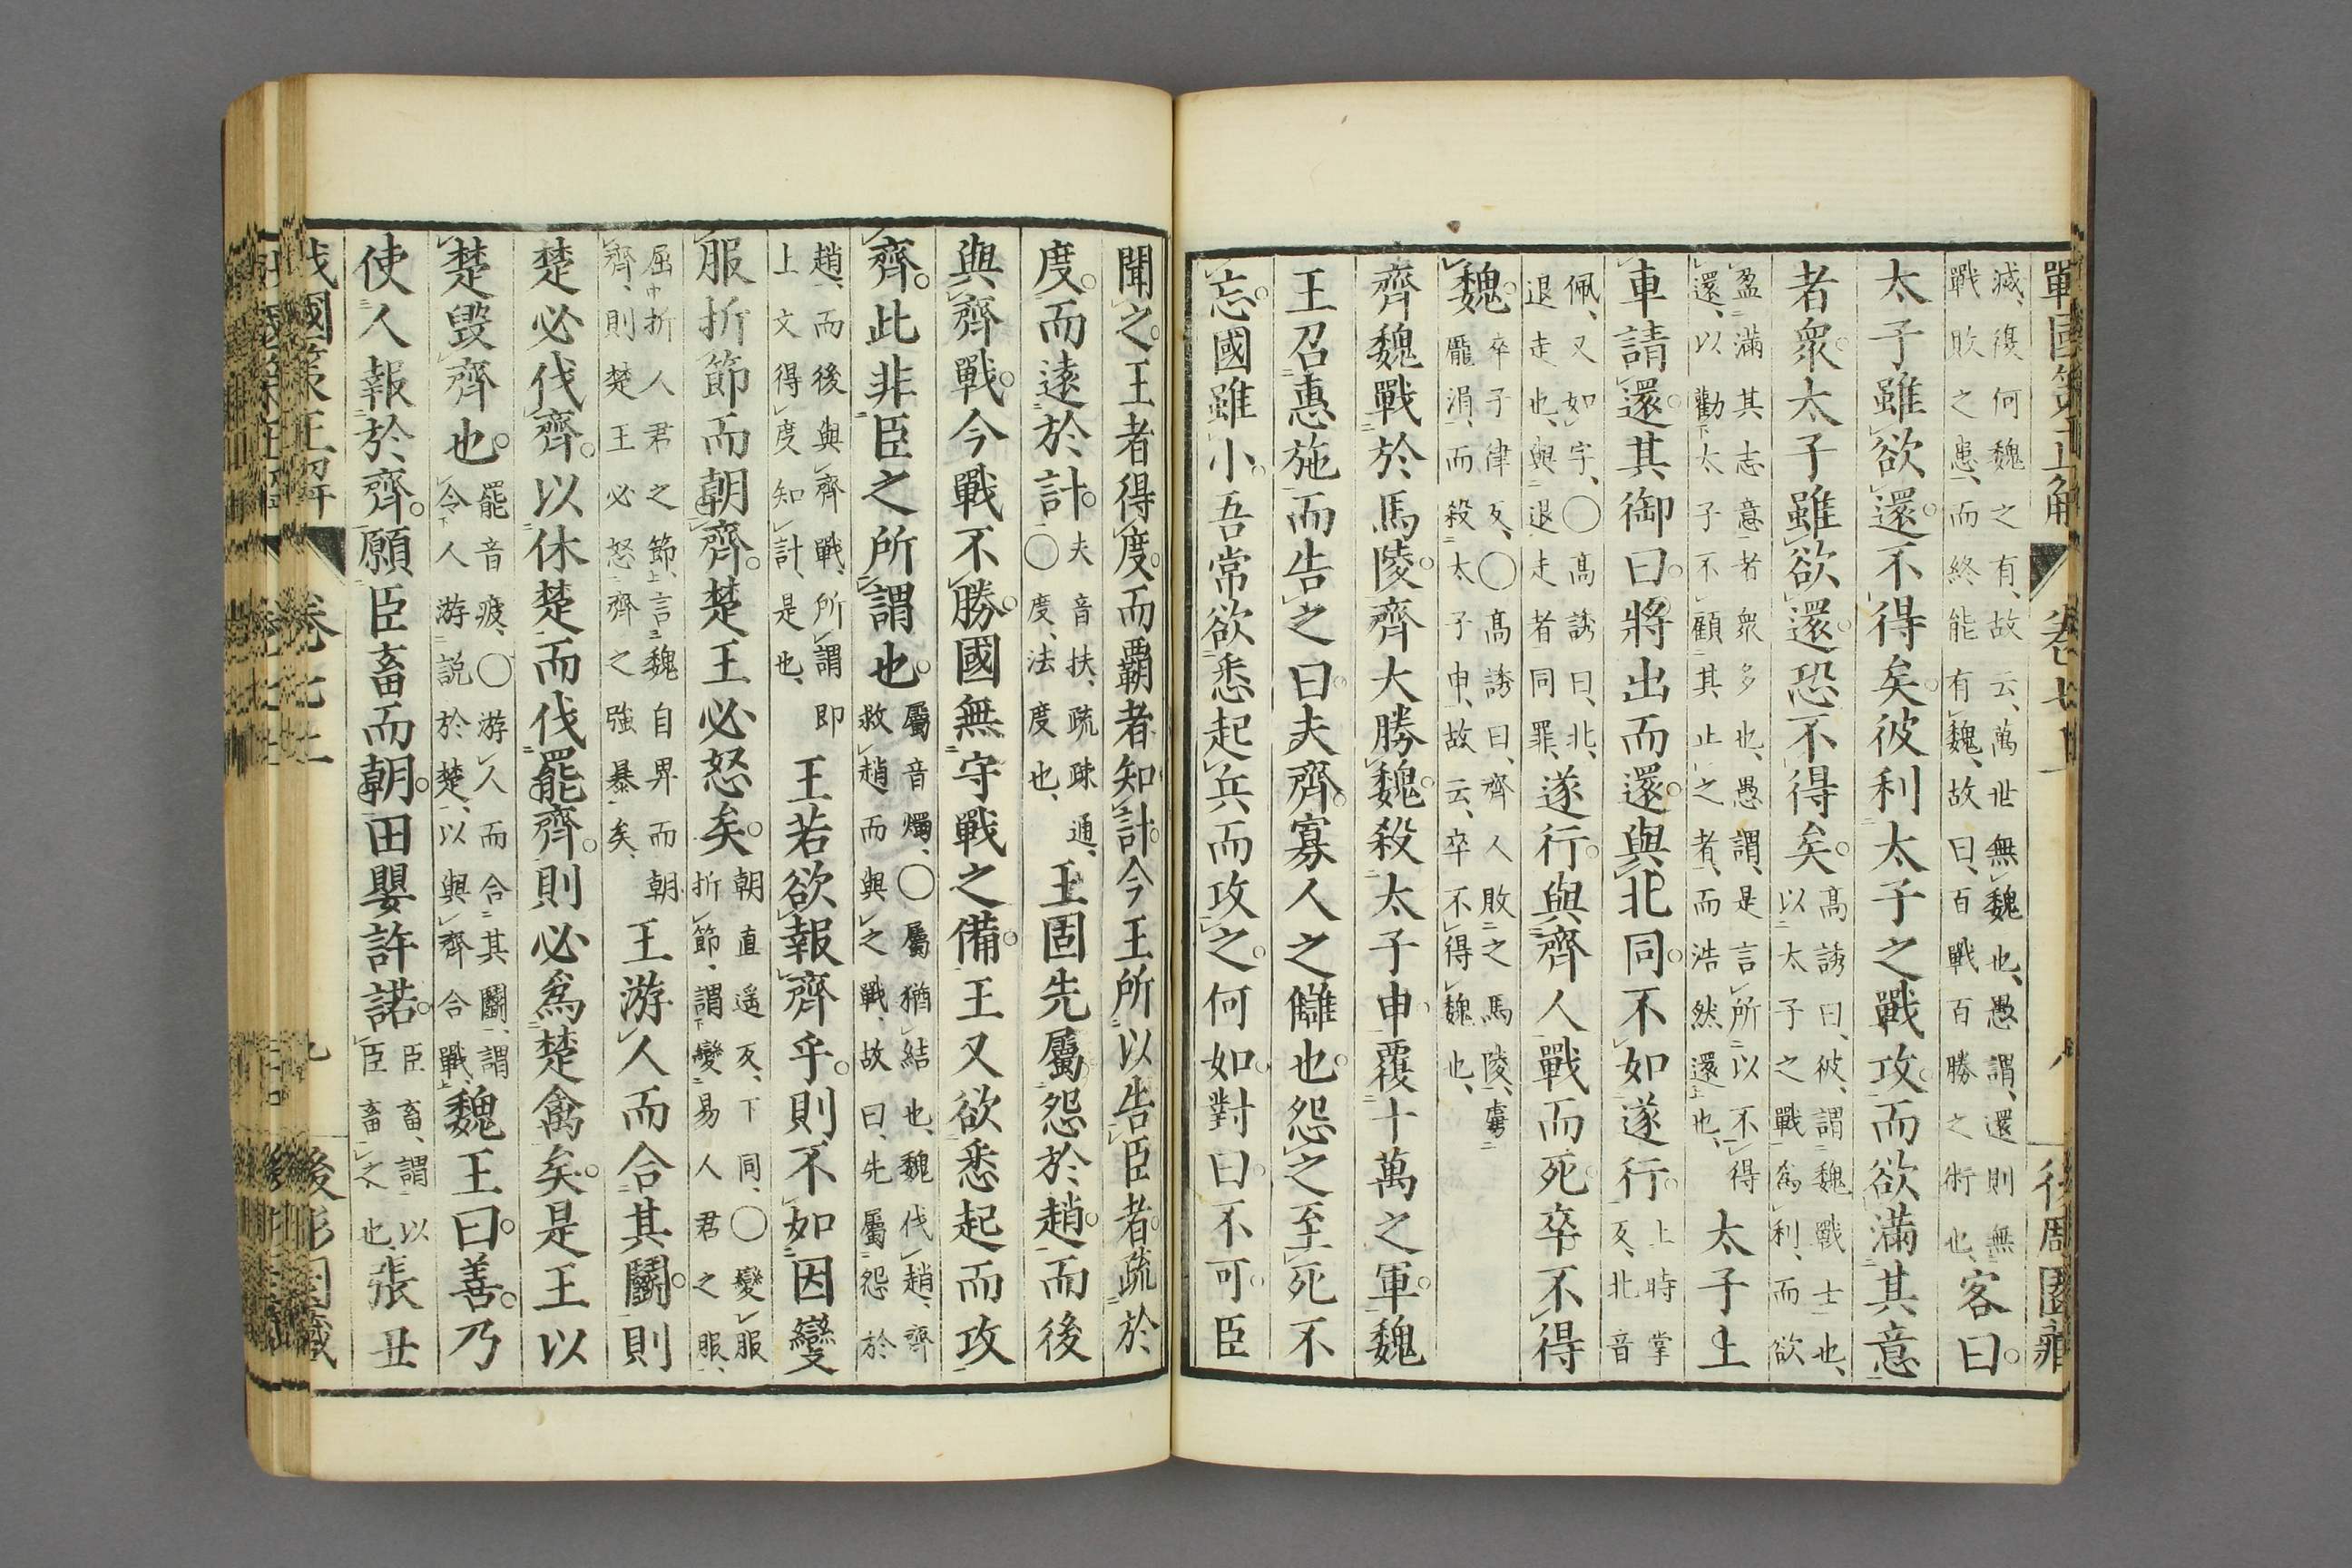 戰國策正解 卷七上 八 後凋園藏
滅、復何魏之有、故云、萬世無魏也、愚謂、還則無
戰敗之患、而終能有魏、故曰、百戰百勝之術也、
客曰。
太子雖欲還。不得矣。彼利太子之戰攻。而欲滿其意
者衆。太子雖欲還。恐不得矣。
高誘曰、彼、謂魏戰士也、
以太子之戰為利、而欲
盈滿其志意者衆多也、愚謂、是言所以不得
還、以勸太子不顧其止之者、而浩然還也、
太子上
車請還。其御曰。將出而還。與北同。不如遂行。
上時掌
反、北音
佩、又如字、〇高誘曰、北、
退走也、與退走者同罪、
遂行。與齊人戰而死。卒不得
魏。
卒子律反、〇高誘曰、齊人敗之馬陵、虜
龐涓、而殺太子申、故云、卒不得魏也、
齊魏戰於馬陵。齊大勝魏。殺太子申。覆十萬之軍。魏
王召惠施而告之曰。夫齊。寡人之讎也。怨之至死不
忘。國雖小。吾常欲悉起兵而攻之。何如。對曰。不可。臣
聞之。王者得度。而覇者知計。今王所以告臣者。疏於
度。而遠於計。
夫音扶、疏疎通、
〇度、法度也、
王固先屬怨於趙。而後
與齊戰。今戰不勝。國無守戰之備。王又欲悉起而攻
齊。此非臣之所謂也。
屬音燭、〇屬猶結也、魏伐趙、齊
救趙、而與之戰、故曰、先屬怨於
趙、而後與齊戰、所謂即
上文得度知計、是也、
王若欲報齊乎。則不如因變
服折節而朝齊。楚王必怒矣。
朝直遥反、下同、〇變服
折節、謂變易人君之服、
屈折人君之節、言魏自畀而朝
齊、則楚王必怒齊之強暴矣、
王游人而合其鬭。則
楚必伐齊。以休楚而伐罷齊。則必爲楚禽矣。是王以
楚毀齊也。
罷音疲、〇游人而合其鬭、謂
令人游説於楚、以與齊合戰、
魏王曰。善。乃
使人報於齊。願臣畜而朝。田嬰許諾。
臣畜、謂以
臣畜之也、
張丑
戰國策正解 卷七上 九 後凋園藏